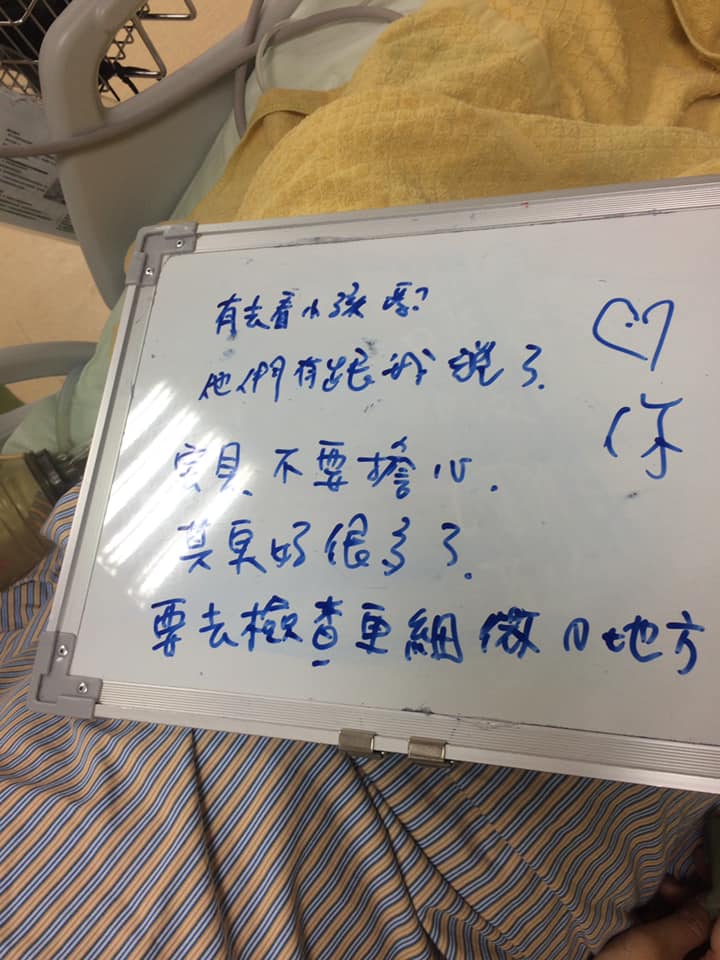 有去看小孩嗎?
他們有跟我說了.
寶貝不要擔心.
其更好很多了.
要去檢查更細微的地方
♡
你